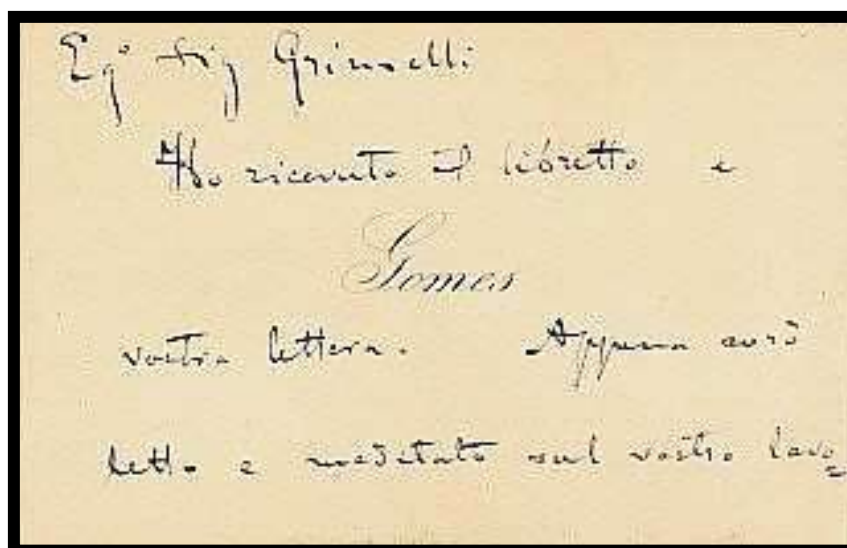 Eg° Sig Grimelli
Ho ricevuto il libretto e
Gomes
vostra lettera. Appena avrò
letto e meditato sul vostro lavo=